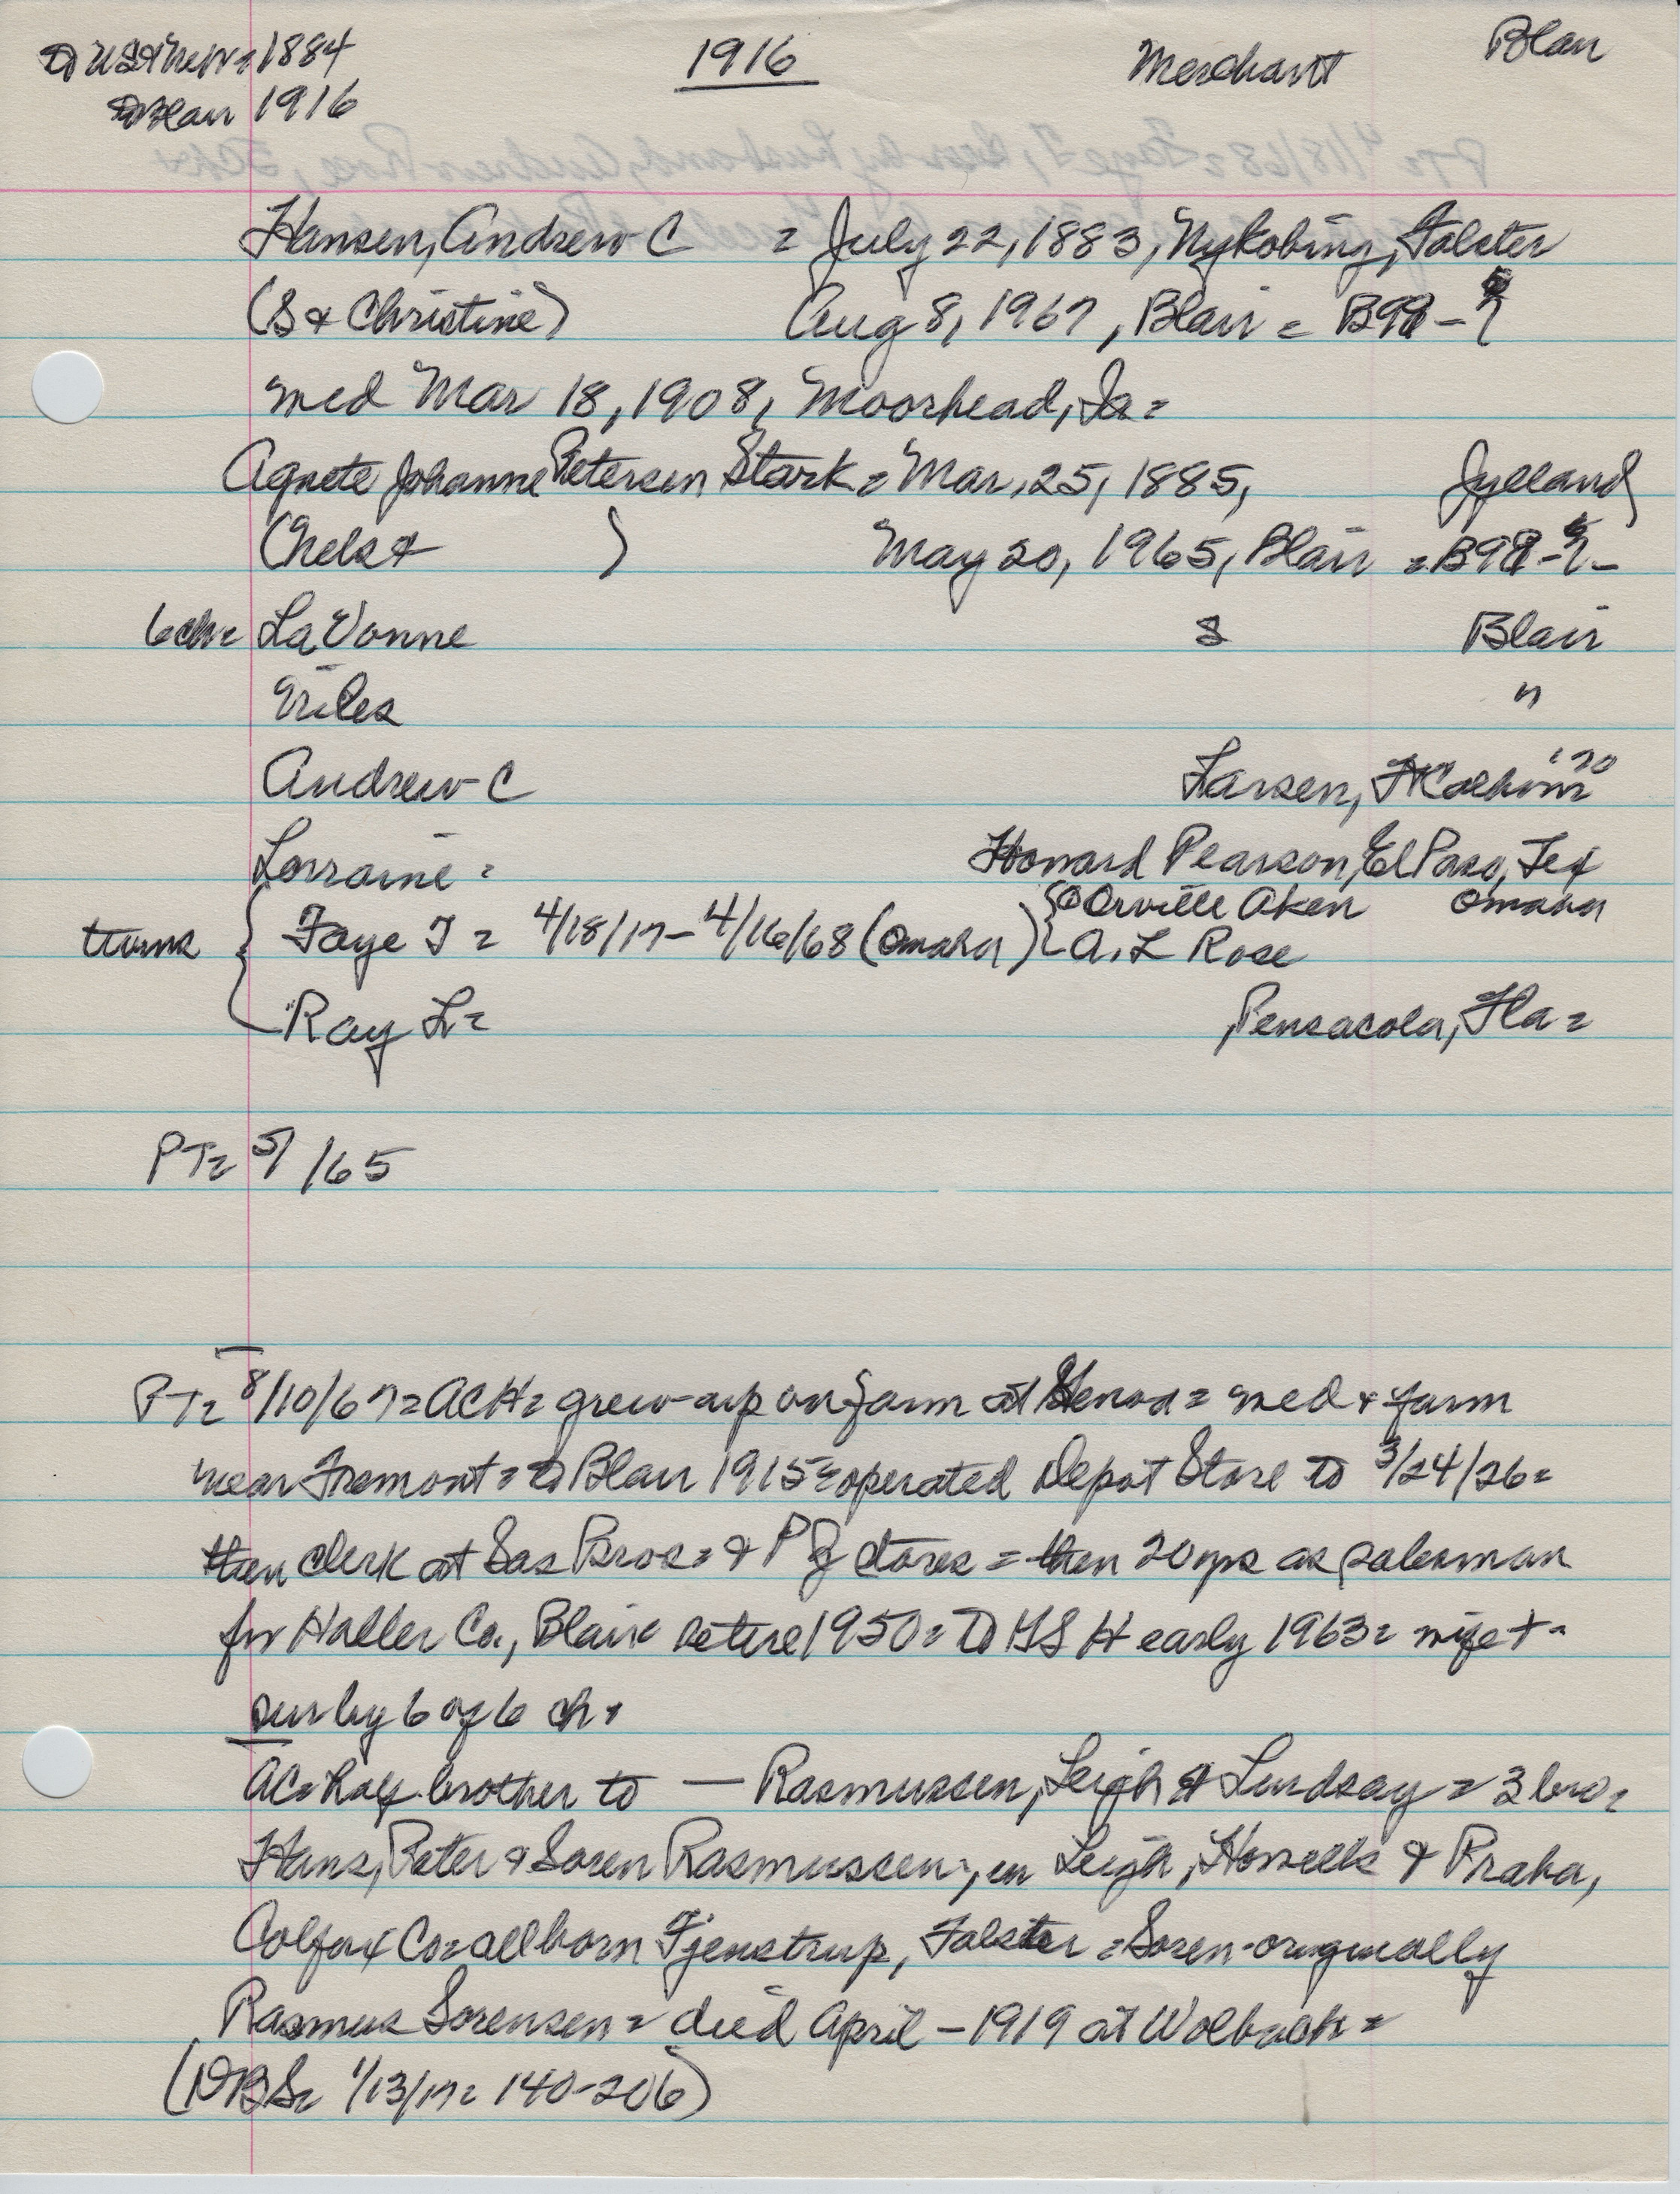 to US & Neb = 1884 1916 Merchant Blair
to Blair 1916
Hansen, Andrew C = July 22, 1883, Nykobing, Falster
(S & Christine) Aug 8, 1967, Blair = B98-
med Mar 18, 1908, Moorhead, Ia =
Agnete Johanne Petersen Stark = Mar, 25, 1885, Jylland
(Nels & ) May 20, 1965, Blair = B98-
6 ch = LaVonne S Blair
Niles "
Andrew C Larsen, Ft Calhoun '20
Lorraine = Howard Pearson, El Paso, Tex
twins { Faye I = 4/18/17 - 4/16/68 (Omaha) } { Orville Aken Omaha
A. L Rose
Ray L = , Pensacola, Fla =
PT = 5/ /65
PT = 8/10/67 = ACH = grew-up on farm at = med & farm
near Fremont = to Blair 1915 = operated Depot Store to 3/24/26 =
then clerk at Sas Bros = & P J stores = then 20 yrs as salesman
for Haller Co., Blair retire 1950 = to early 1963 = wife + -
sur by 6 of 6 ch.
AC = half brother to — Rasmussen, Leigh & Lindsay = 3 bro =
Hans, Peter & Soren Rasmussen, in Leigh, Howells & Praha,
Colfax Co = all born Tjenstrup, Falster = Soren-originally
Rasmus Sorensen = died April - 1919 at Wolbach =
(DBS = 1/13/17 = 140-206)